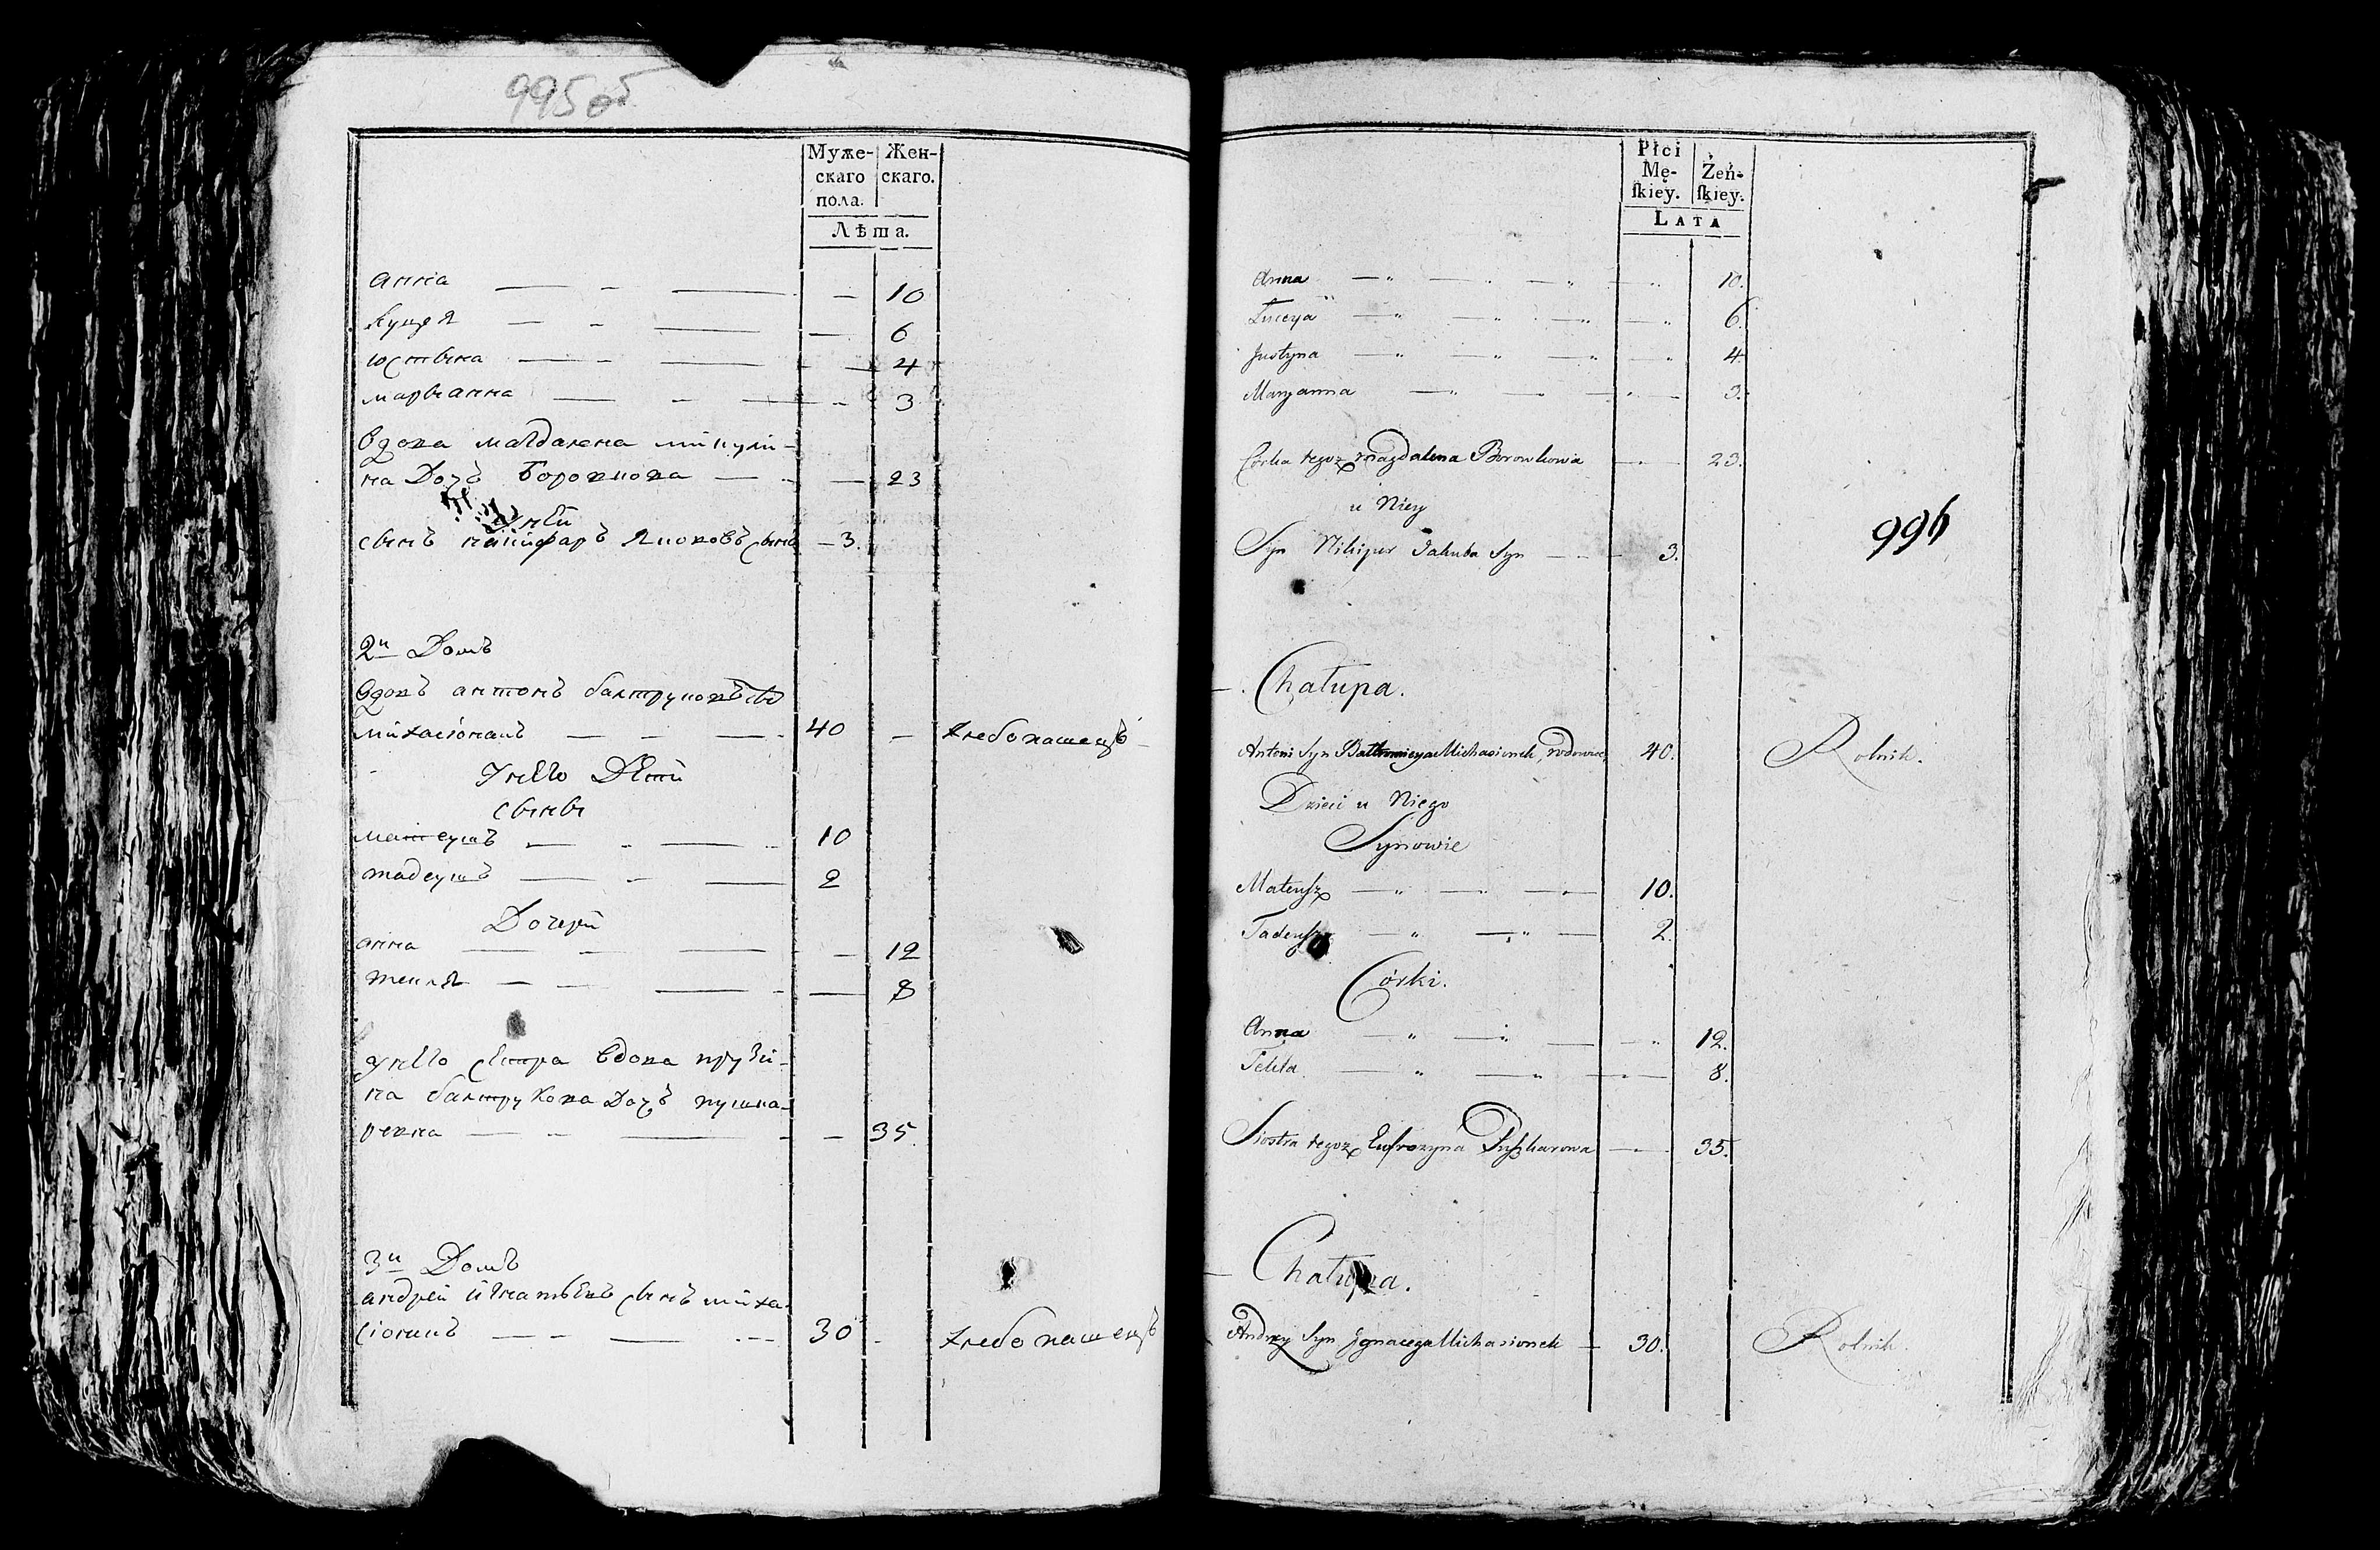 995об
Муже- Жен-
скаго скаго.
пола.
Лѣта.
Анна — — — — 10
Луцея — — — — 6
Юстына — — — — 4
Марыанна — — — — 3
Вдова Магдалена Микули-
на Дочъ Боровкова — — — 23
У ней
Сынъ Никифаръ Якововъ сынъ — 3.
2й Домъ
Вдовъ Антонъ Балтруковъ
Михасіонакъ — — — 40 — хлебопашецъ
У него Дѣти
Сыны
Матеушъ — — — 10
Тадеушъ — — — 2
Дочери
Анна — — — — 12
Текля — — — — 8
У него сестра Вдова Прузи-
на Балтрукова Дочъ Пушка-
ревна — — — — 35.
3й Домъ
Андрей Игнатьевъ сынъ Миха-
сіонакъ — — — 30 - хлебопашецъ
Płci
Mę- Żeń-
ſkiey. ſkiey.
LATA
Anna — — — — 10.
Łucya — — — — 6.
Justyna — — — — 4.
Maryanna — — — — 3.
Corka tegoż Magdalena Borowkowa — 23.
u Niey
Syn Nikiper Jakuba Syn — — 3.
996
Chałupa.
Antoni Syn Bałtromieya Michasionek, wdowiec, 40. Rolnik.
Dzieci u Niego
Synowie
Mateuſz — — — 10.
Tadeuſz — — — 2.
Córki.
Anna — — — — 12.
Tekla — — — — 8.
Siostra tegoż Eufrozyna Puſzkarowa — 35.
Chałupa.
Andrzy Syn Ignacego Michasionek — 30. Rolnik.